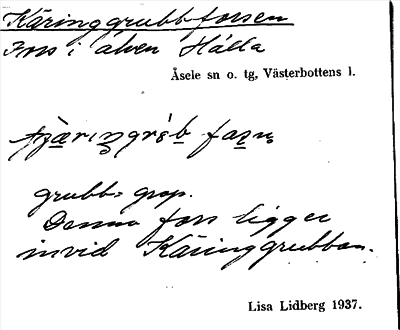 Käringgrubbforsen
Fors i älven Hälla
Åsele sn o. tg, Västerbottens l.
grubb = grop.
Denna fors ligger
invid Käringgrubban.
Lisa Lidberg 1937.